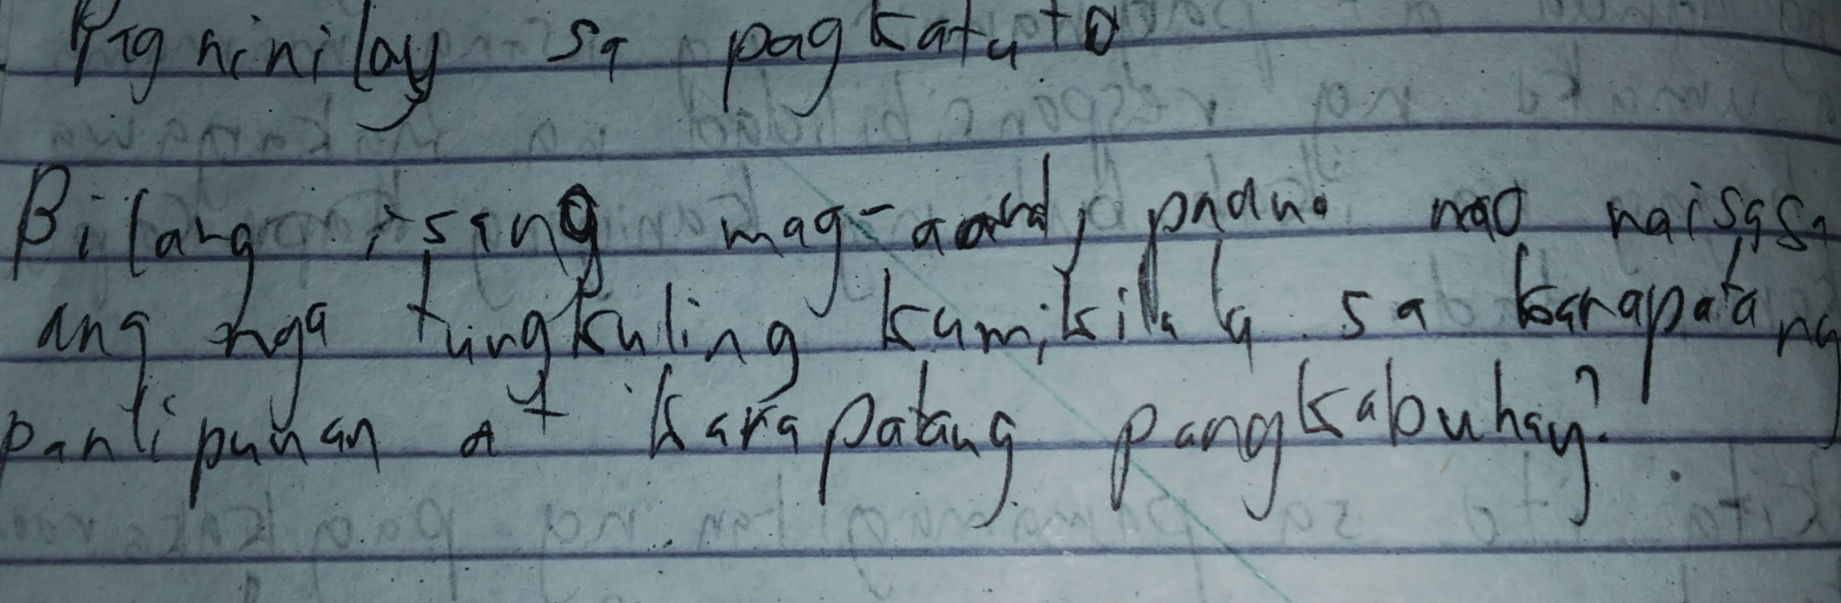 Pagninilay sa pagkatuto
Bilang isang mag-aaral, paano mo naisasa
ang mga tungkuling kumikilala sa karapatang
panlipunan at karapatang pangkabuhay?